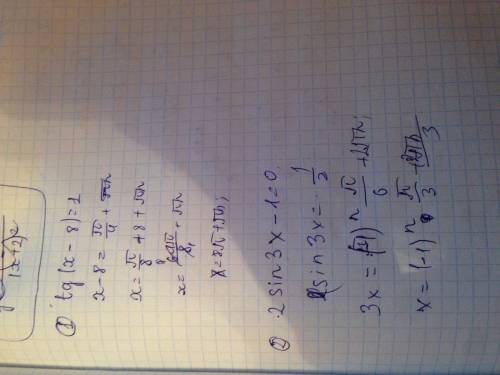 (x+2)2
① tg(x-8)=1
x-8=π/4+πn
x=π/8+8+πn
x=8π+πn;
② 2sin3x-1=0
sin3x=1/2
3x=(-1)ⁿ π/6+2πn;
x=(-1)ⁿ π/3+2πn/3